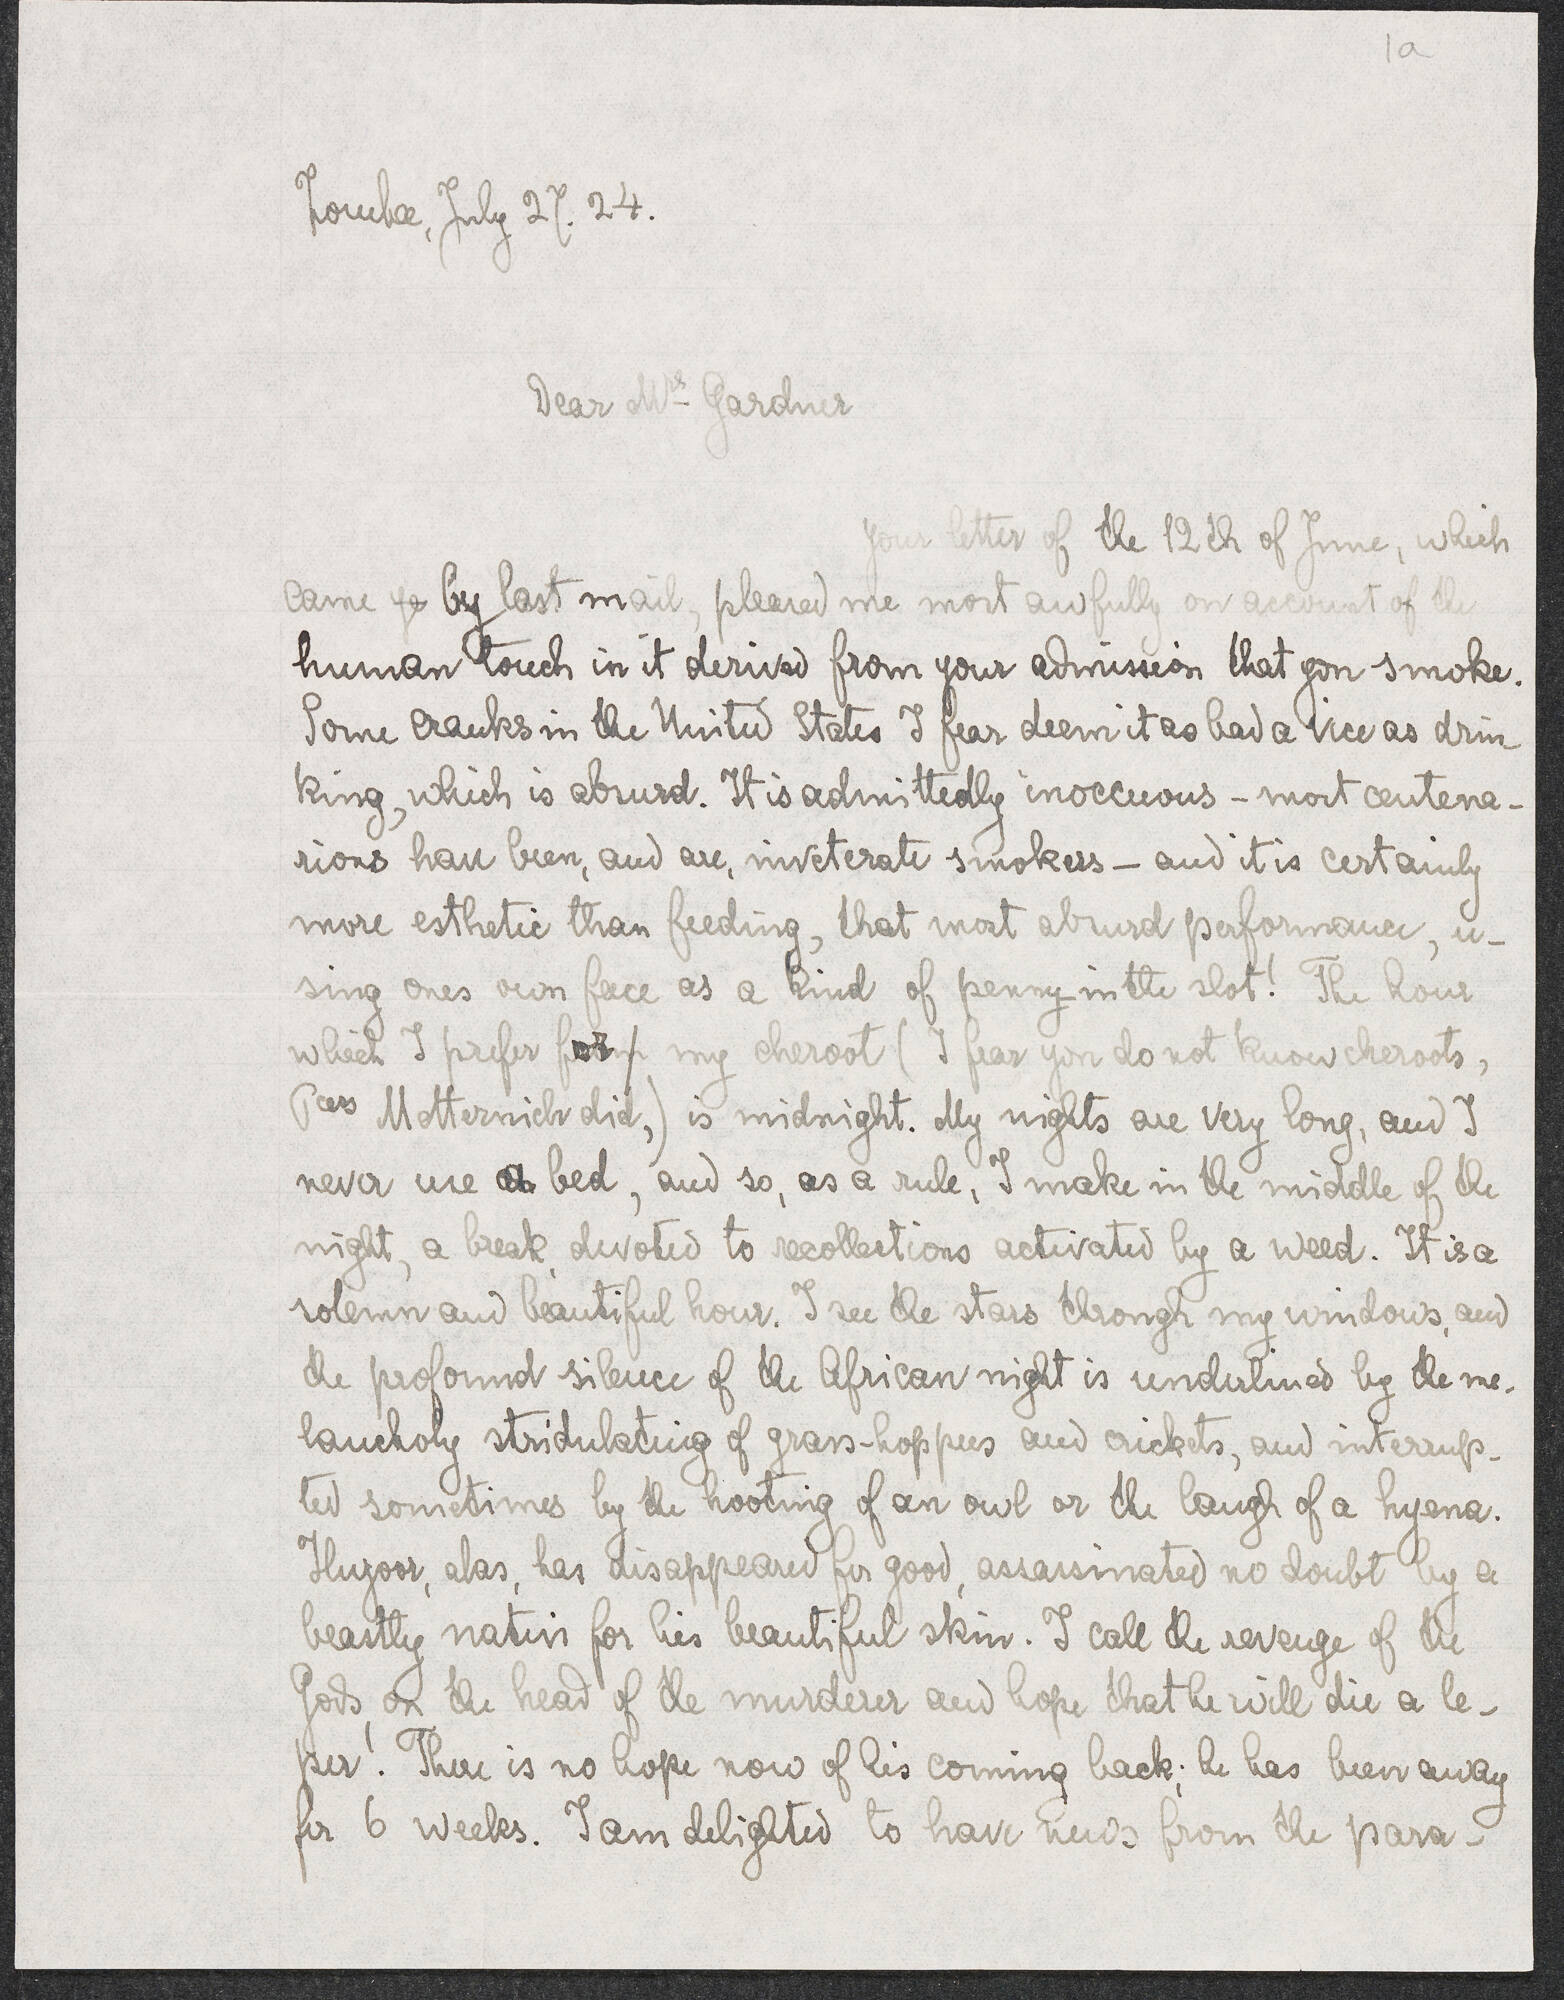 1a
Zomba, July 27. 24.
Dear Mrs Gardner
your letter of the 12th of June, which
came by last mail, pleased me most awfully on account of the
human touch in it derived from your admission that you smoke.
Some cranks in the United States I fear deem it as bad a vice as drin-
king, which is absurd. It is admittedly inoccuous - most centena-
rions have been, and are, inveterate smokers - and it is certainly
more esthetic than feeding, that most absurd performance, u-
sing ones own face as a kind of penny in the slot! The hour
which I prefer for my cheroot (I fear you do not know cheroots,
Metternich did,) is midnight. My nights are very long, and I
never use a bed, and so, as a rule, I make in the middle of the
night, a break, devoted to recollections activated by a weed. It is a
solemn and beautiful hour. I see the stars through my windows, and
the profound silence of the African night is underlined by the me-
lancholy stridulating of grass-hoppers and crickets, and interrup-
ted sometimes by the hooting of an owl or the laugh of a hyena.
Huzoor, alas, has disappeared for good, assassinated no doubt by a
beastly nativ for his beautiful skin. I call the revenge of the
Gods on the head of the murderer and hope that he will die a le-
per! There is no hope now of his coming back; he has been away
for 6 weeks. I am delighted to have news from the para-